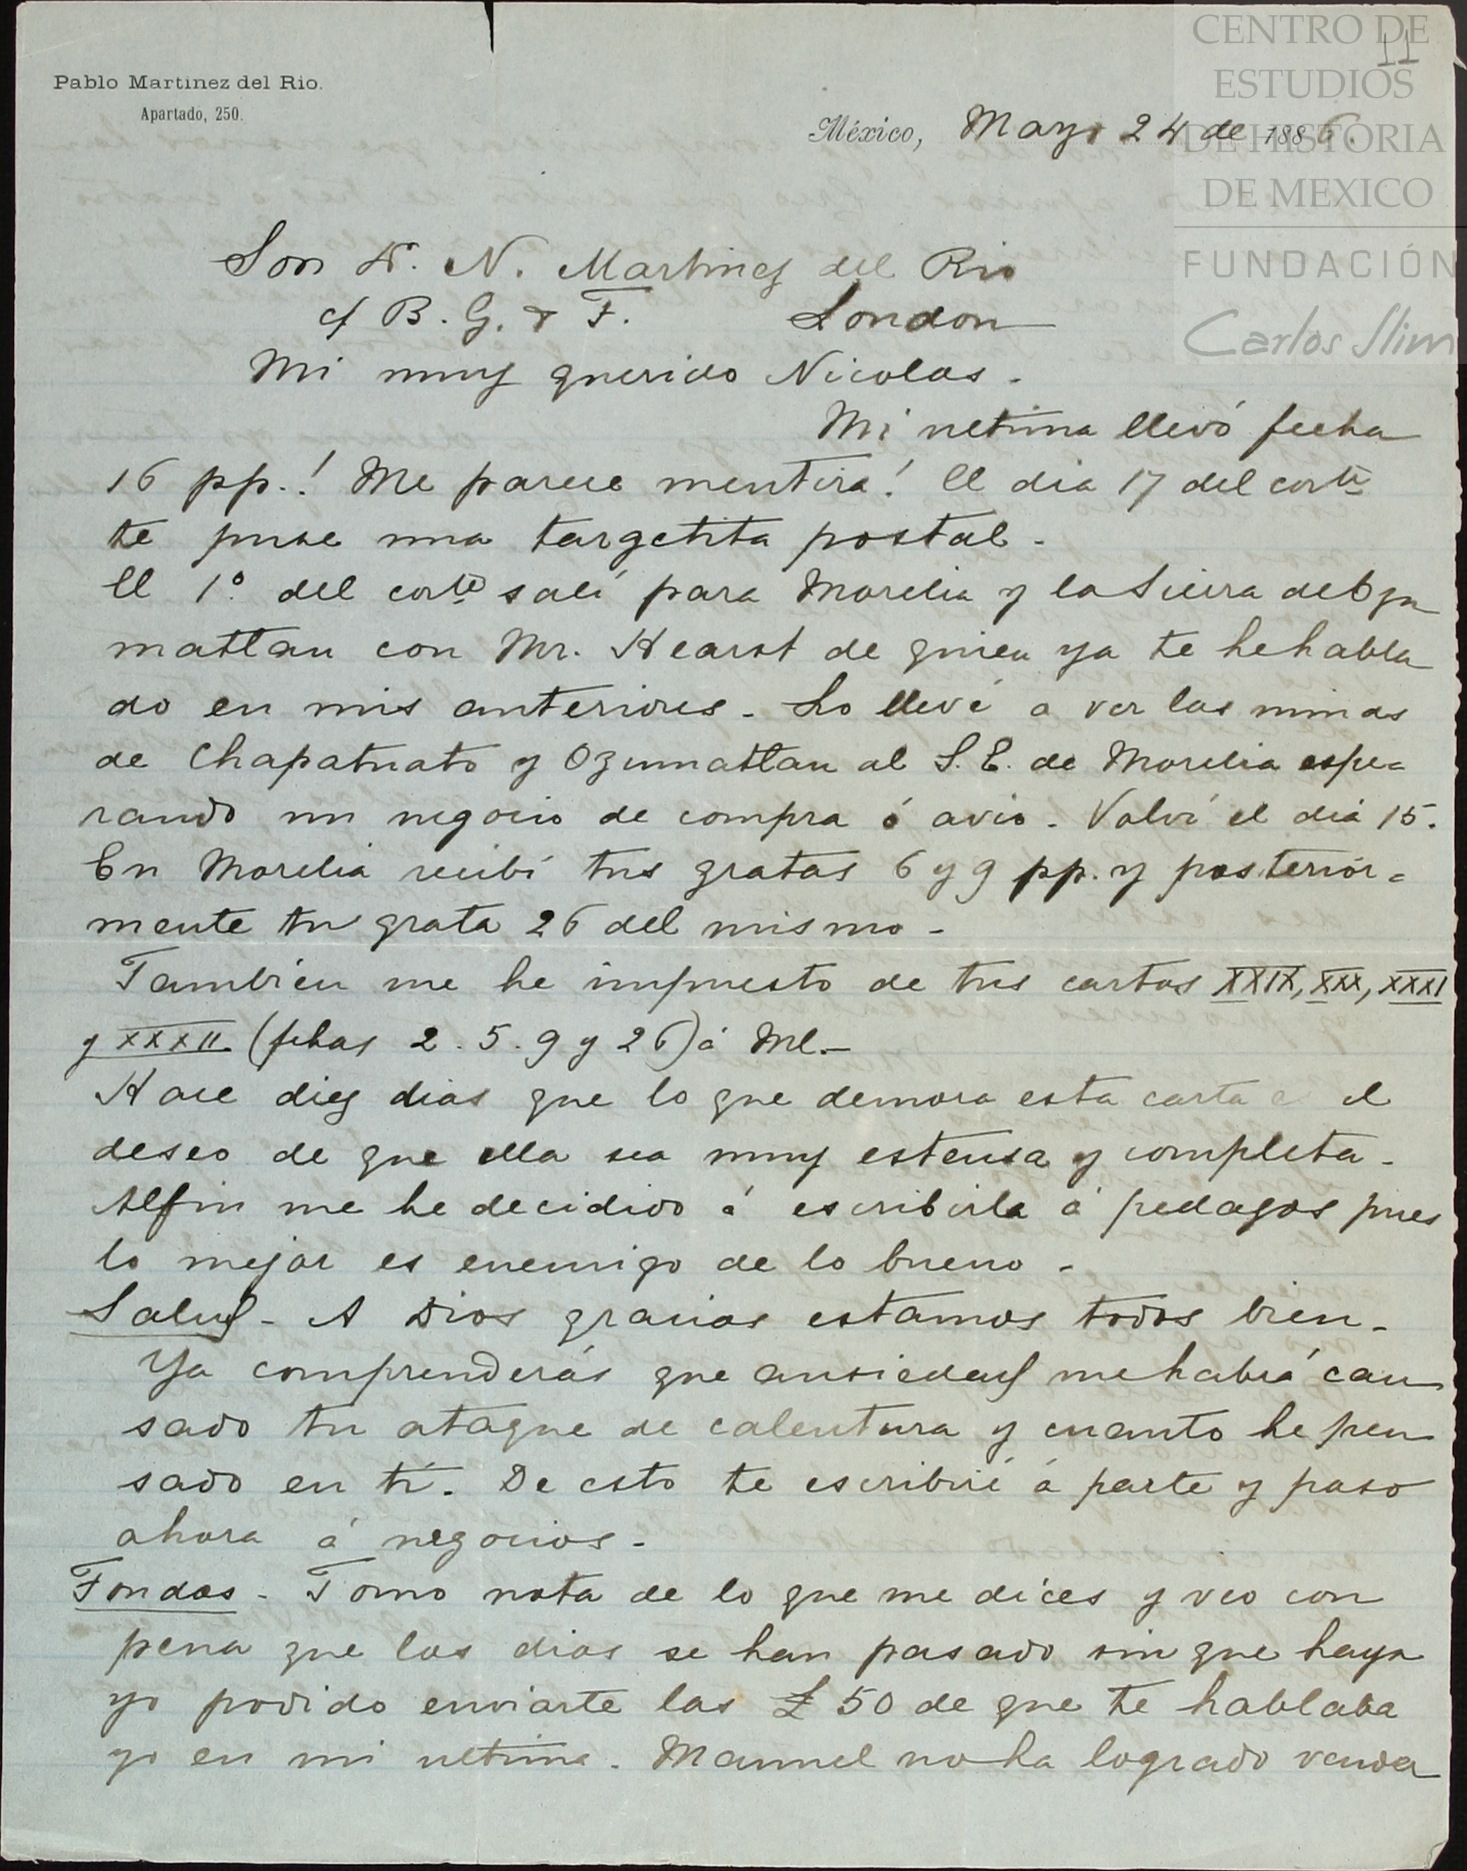 CENTRO DE
ESTUDIOS
DE HISTORIA
DE MEXICO
FUNDACIÓN
Carlos Slim
11
Pablo Martinez del Rio.
Apartado, 250.
México, Mayo 24 de 1886.
Sor D. N. Martinez del Rio
c/ B. G. & F. London
Mi muy querido Nicolas.
Mi ultima llevó fecha
16 pp.! Me parece mentira! El dia 17 del corte
te puse una targetita postal.
El 1º. del corte salí para Morelia y la Sierra de Ozu
matlan con Mr. Hearst de quien ya te he habla
do en mis anteriores. Lo llevé a ver las minas
de Chapatuato y Ozumatlan al S.E. de Morelia espe=
rando un negocio de compra ó avio. Volví el dia 15.
En Morelia recibí tus gratas 6 y 9 pp. y posterior=
mente tu grata 26 del mismo.
Tambien me he impuesto de tus cartas XXIX, XXX, XXXI
y XXXII (fchas 2. 5. 9 y 26) á Ml.
Hace diez dias que lo que demora esta carta e el
deseo de que ella sea muy estensa y completa.
Alfin me he decidido á escribirla á pedazos pues
lo mejor es enemigo de lo bueno.
Salud. A Dios gracias estamos todos bien.
Ya comprenderás que ansiedad me habrá cau
sado tu ataque de calentura y cuanto he pen
sado en tí. De esto te escribiré á parte y paso
ahora á negocios.
Fondos. Tomo nota de lo que me dices y veo con
pena que los dias se han pasado sin que haya
yo podido enviarte las £ 50 de que te hablaba
yo en mi ultima. Manuel no ha logrado vender